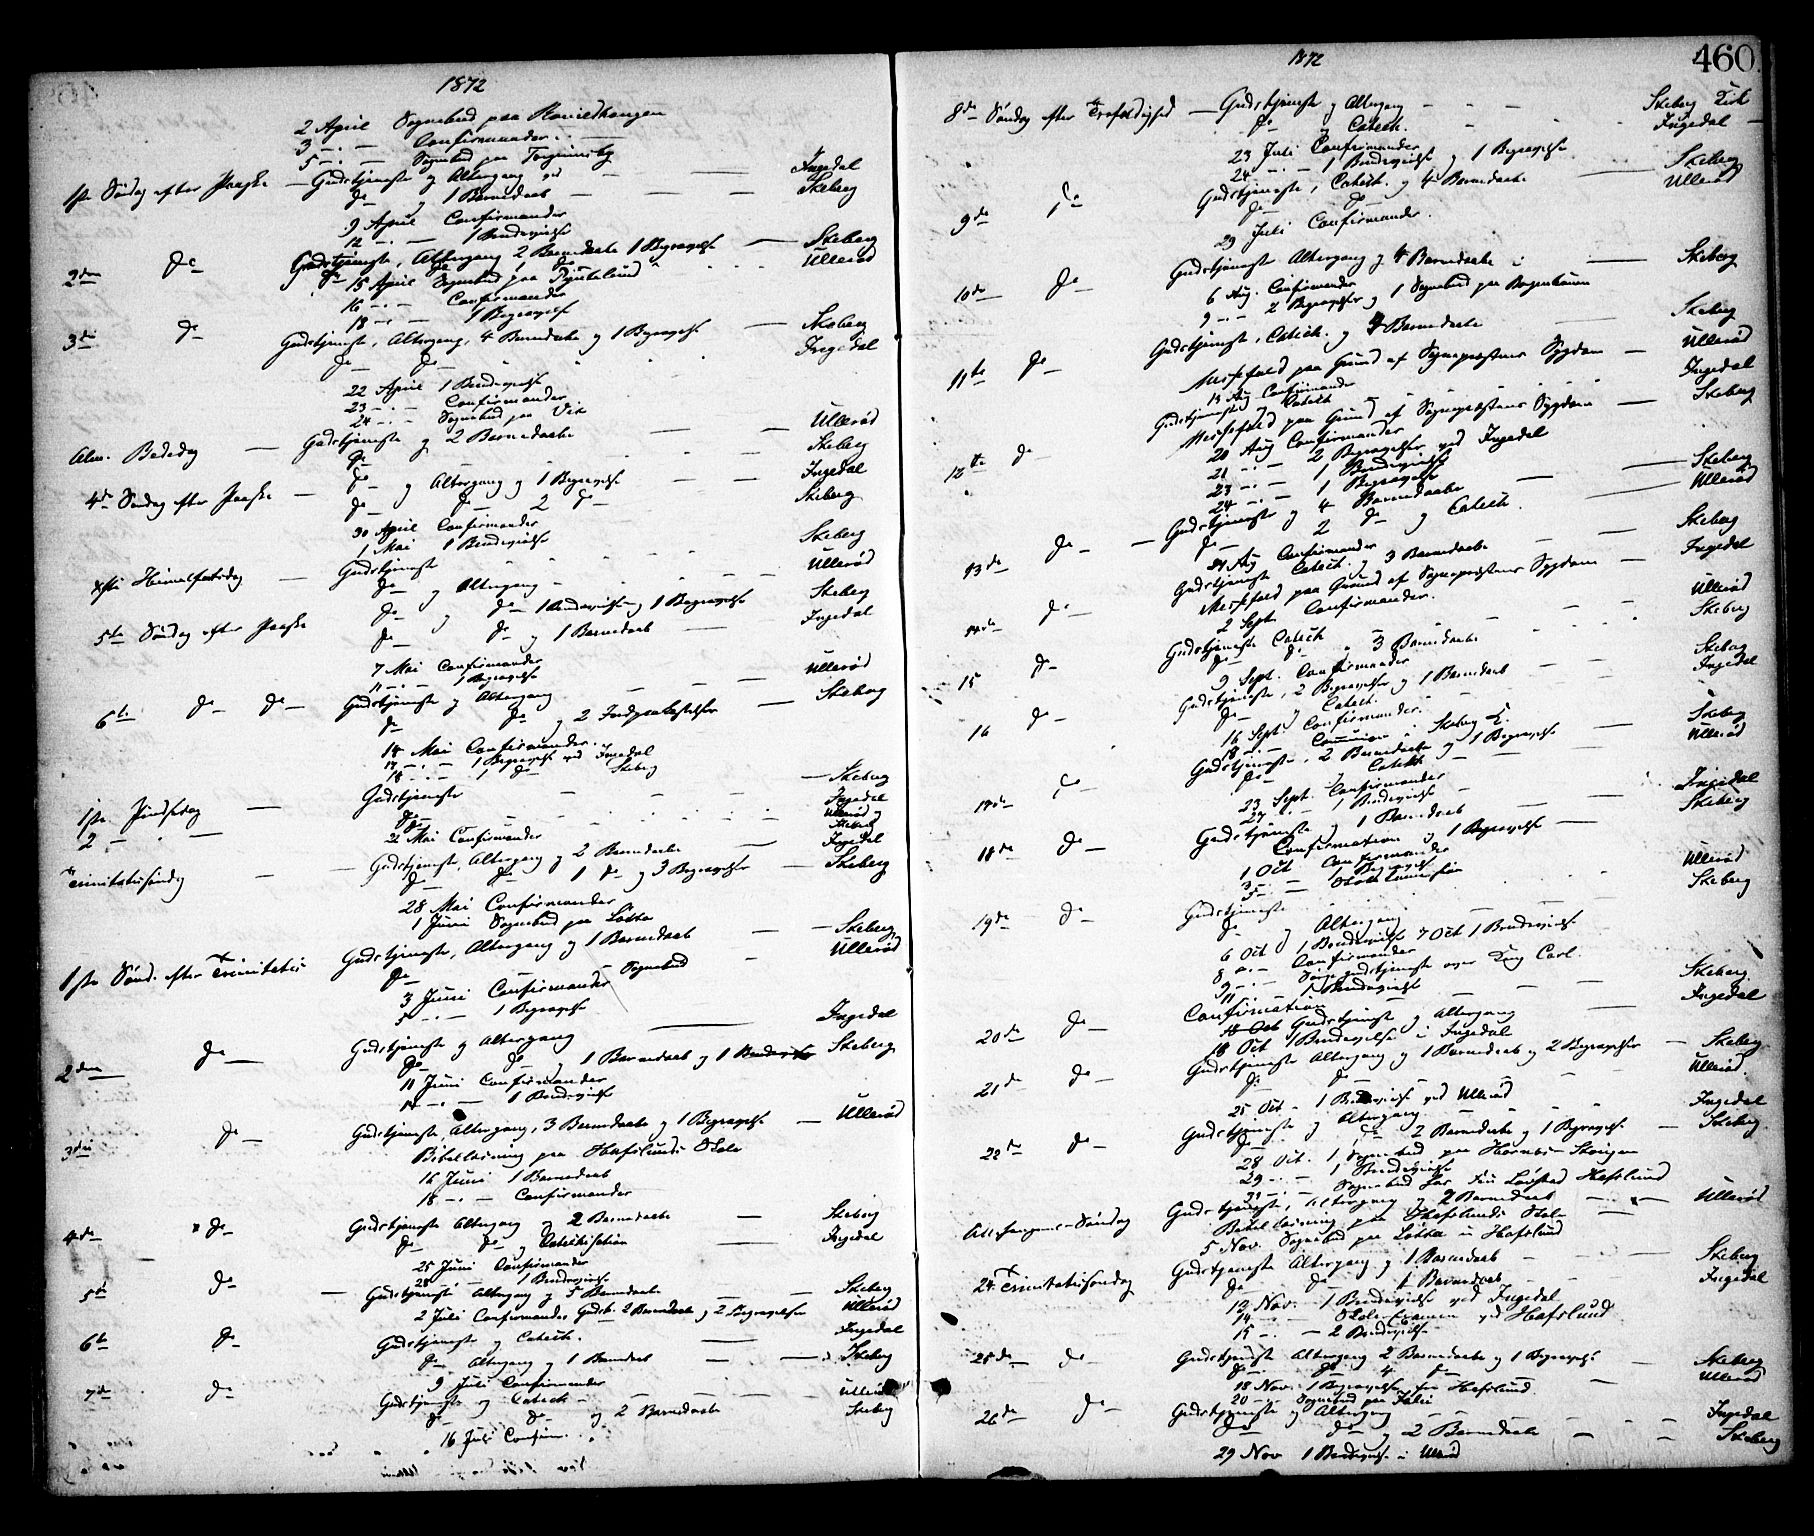 1872
2 April Sognebud paa
3 -"- — Confirmander
5 -"- — Sognebud paa
1ste Søndag efter Paaske — Gudstjeneste og Altergang — Ingedal
do og 1 Barnedaab — Skeberg
9 April Confirmander
12 -"- — 1 Brudevielse
2den do Gudstjeneste, Altergang 2 Barnedaabe 1 Begravelse — Skeberg
Ullerød
15 April Sognebud paa
16 -"- Confirmander
18 -"- — 1 Begravelse
3die do Gudstjeneste, Altergang, 4 Barnedaabe og 1 Begravelse — Skeberg
do do Ingedal
22 April 1 Brudevielse
23 -"- Confirmander
24 -"- Sognebud paa Vik
Alm. Bededag — Gudstjeneste og 2 Barnedaabe — Ullerød
do Skeberg
4de Søndag efter Paaske — do og Altergang og 1 Begravelse — Ingedal
do do 2 do Skeberg
30 April Confirmander
1 Mai 1 Brudevielse
Xsti Himmelfartsdag — Gudstjeneste Skeberg
do og Altergang Ullerød
5te Søndag efter Paaske do og do 1 Brudevielse og 1 Begravelse Skeberg
do do og 1 Barnedaab — Ingedal
7 Mai Confirmander
11 -"- 1 Begravelse
6te do do — Gudstjeneste og Altergang — Ullerød
do do og 2 — Skeberg
14 Mai Confirmander
17 -"- 1 Begravelse ved Ingedal
18 -"- 1 do Skeberg
1ste Pindsedag — Gudstjeneste — Skeberg
do Ingedal
2 -"- — do Ullerød
Skeberg
22 Mai Confirmander
Trinitatissøndag — Gudstjeneste, Altergang og 2 Barnedaabe — Ingedal
do do 1 do og 3 Begravelser — Skeberg
28 Mai Confirmander
1 Juni Sognebud paa Løkka
1ste Sønd. efter Trinitatis Gudstjeneste, Altergang og 1 Barnedaab — Skeberg
do Ullerød
3 Juni Confirmander — Sognebud
5 -"- — 1 Begravelse
2den do — Gudstjeneste og Altergang — Ingedal
do do 1 Barnedaab og 1 Skeberg
11 Juni Confirmander
14 -"- — 1 Brudevielse
3die do — Gudstjeneste, Altergang, 3 Barnedaabe og 1 Begravelse — Ullerød
Bibellæsning paa Hafslunds Skole
16 Juni 1 Barnedaab
18 -"- — Confirmander
4de do — Gudstjeneste Altergang og 2 Barnedaabe — Skeberg
do do og Catechisation Ingedal
25 Juni Confirmander
28 — 1 Brudevielse
5te do — Gudstjeneste Altergang og 5 Barnedaabe — Skeberg
2 Juli Confirmander, Gudst. 2 Barnedaabe og 2 Begravelser Ullerød
6te do Gudstjeneste og Catech. — Ingedal
do Altergang og 1 Barnedaab — Skeberg
9 Juli Confirmander
7de do Gudstjeneste og Catech — Ullerød
do do og 2 Barnedaabe Skeberg
16 Juli Confirm.
1872
460
8de Søndag efter Trefoldighed — Gudstjeneste og Altergang — Skeberg Kirk
do og Catech. Ingedal
23 Juli Confirmander
24 -"- 1 Brudevielse og 1 Begravelse
9de do Gudstjeneste, Catech. og 4 Barnedaabe — Skeberg
do do Ullerød
29 Juli Confirmander.
10de do — Gudstjeneste Altergang og 4 Barnedaabe — Skeberg
6 Aug. Confirmander
9 -"- 2 Begravelser og 1 Sognebud paa
11te do — Gudstjeneste, Catech. og 4 Barnedaabe Skeberg
Messefald paa Grund af Sognepræstens Sygdom — Ullerød
13 Aug Confirmander
Gudstjeneste og Catech Ingedal
12te do Messefald paa Grund af Sognepræstens Sygdom — Skeberg
20 Aug Confirmander
21 -"- 2 Begravelser ved Ingedal
23 -"- — 1 Brudevielse
24 -"- — 1 Begravelse
13de do — Gudstjeneste og 4 Barnedaabe — Skeberg
do 2 do og Catech. Ullerød
Aug Confirmander
14de do Gudstjeneste Catech. og 3 Barnedaabe — Skeberg
Messefald paa Grund af Sognepræstens Sygdom — Ingedal
2 Sept Confirmander.
15 do Gudstjeneste Catech Ullerød
do do 3 Barnedaabe Skeberg
9 Sept. Confirmander
16 do Gudstjeneste, 2 Begravelser og 1 Barnedaab Skeberg
do og Catech. Ingedal
16 Sept Confirmander.
18 -"- Communion i Skeberg K.
17de do Gudstjeneste, 2 Barnedaabe og 1 Begravelse — Skeberg
do Catech Ullerød
23 Sept. Confirmander
27 -"- 1 Brudevielse
18de do Gudstjeneste og 1 Barnedaab Ingedal
Confirmation og 1 Begravelse — Skeberg
1 Oct Confirmander
3 -"- — 1 Begravelse
5 -"- — Skolecommission
19de do Gudstjeneste Ullerød
do og Altergang Skeberg
6 Oct 1 Brudevielse 7 Oct 1 Brudevielse
8 -"- Confirmander
9 -"- Sørgegudstjeneste over Kong Carl.
11 -"- 1 Brudevielse
20de do Confirmation Skeberg
Gudstjeneste og Altergang — Ingedal
18 Oct 1 Brudevielse i Ingedal
21de do Gudstjeneste Altergang og 1 Barnedaab og 2 Begravelser — Skeberg
do do Ullerød.
25 Oct 1 Brudevielse ved Ullerød
22de do Gudstjeneste og Altergang — Ingedal
do do 2 Barnedaabe og 1 Begravelse — Skeberg.
28 Oct. 1 Sognebud paa
29 -"- 1 Brudevielse
31 -"- Sognebud Hafslund
Allehelgens-Søndag Gudstjeneste, Altergang og 2 Barnedaab Ullerød
Bibellæsning paa Hafslunds Skole
5 Nov. Sognebud paa Løkka u Hafslund
24 Trinitatissøndag Gudstjeneste Altergang og 1 Barnedaab Skeberg
do do 1 Barnedaab Ingedal
12 Nov. — 1 Brudevielse ved Ingedal
14 -"- Skole-Examen ved Hafslund
15 -"- — 2 Brudevielse
25de do Gudstjeneste Altergang 2 Barnedaabe og 1 Begravelse — Skeberg
do do 4 do Ullerød
18 Nov. 1 Begravelse fra Hafslund
20 — Sognebud paa
26de do Gudstjeneste og Altergang Ingedal
do do og 2 Barnedaabe — Skeberg
29 Nov 1 Brudevielse i Ullerød